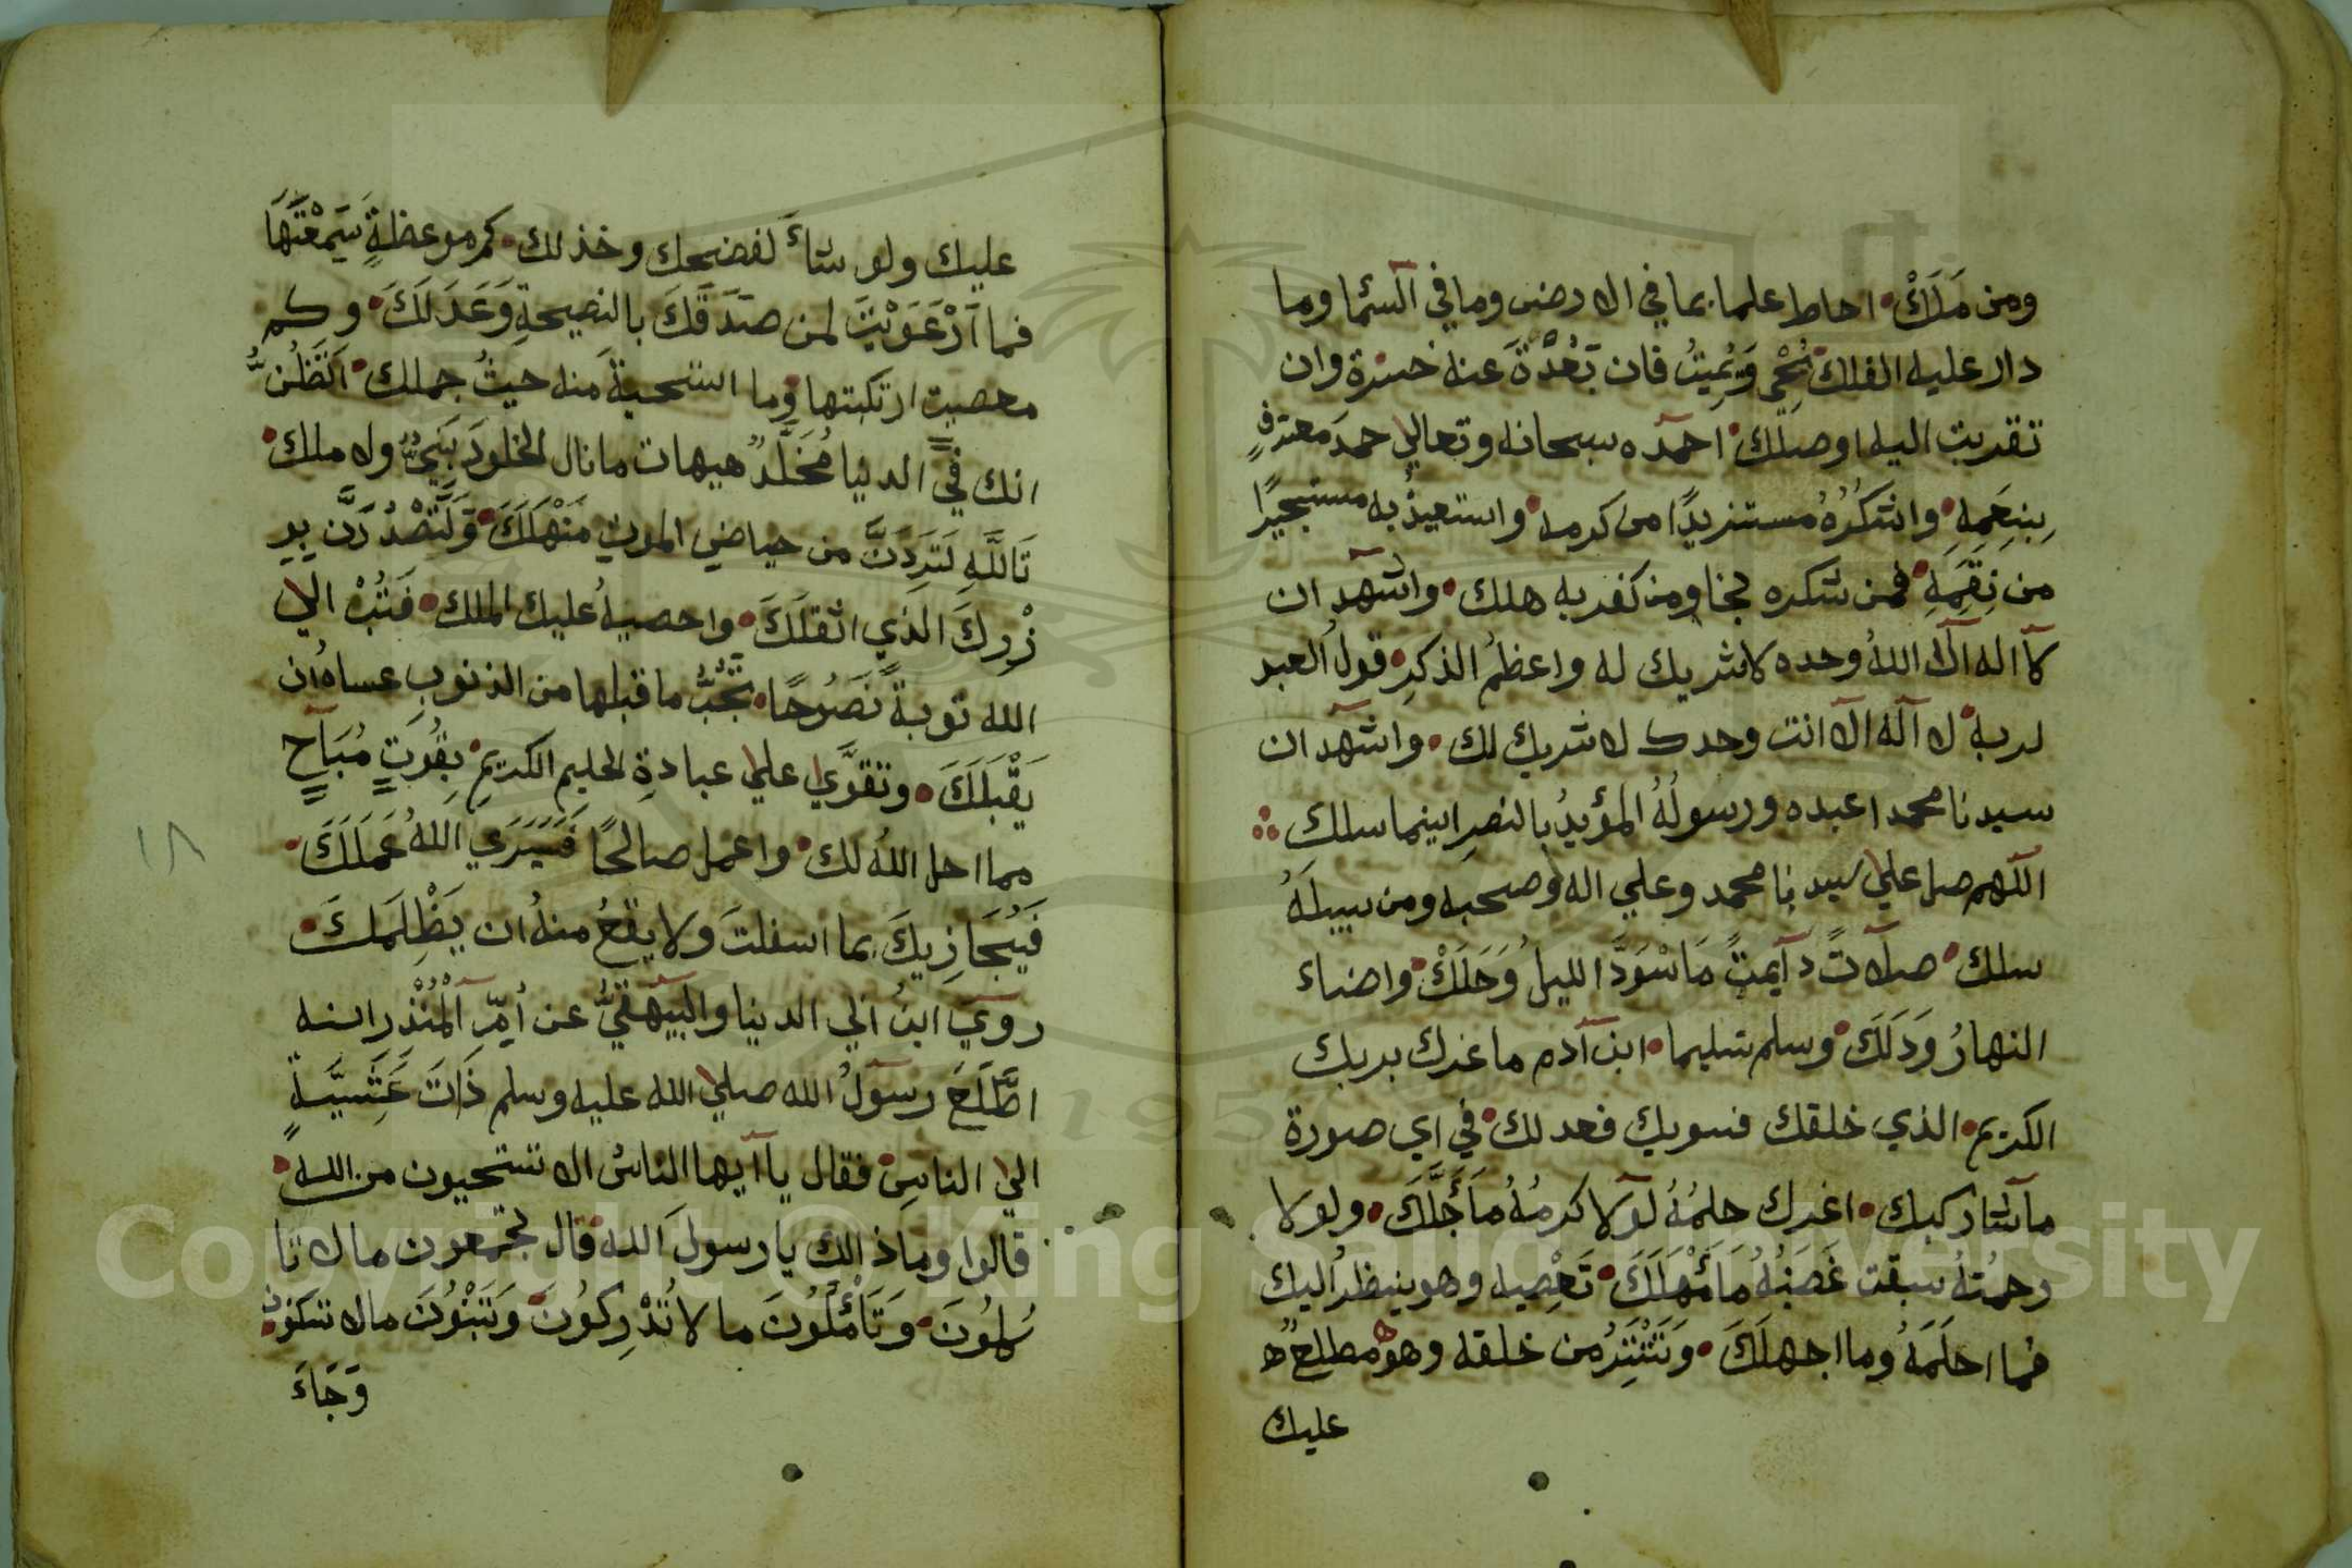 ومن مَلَكْ احاط علما بما في الارض وما في السما وما
دار عليه الفلك يُحْيِ وَيُمِيتُ فان بَعُدَّةَ عنه خسرة وان
تقربت اليه اوصلك احمده سبحانه وتعالي حمدَ معترفٍ
بِنِعَمِهِ واشكُرُهُ مستزيدًا من كرمه واستعيذُ به مستجيرًا
من نِقَمِهِ فمن شكره نجا ومن كفر به هلك واشهد ان
لا اله الا اللهُ وحده لا شريك له واعظمُ الذكرِ قولُ العبد
لربه لا اله الا انت وحدك لا شريك لك واشهد ان
سيدنا محمدا عبده ورسولُهُ المؤيدُ بالنصرِ اينما سلك
اللهم صل علي سيدنا محمد وعلي اله وصحبه ومن سبيلَهُ
سلك صلاتً دآيمتً مَاسْوَدَّ الليلُ وَحَلَكْ واضاء
النهارُ وَدَلَكَ وسلم تسليما ابن آدم ما غرك بربك
الكريم الذي خلقك فسويك فعدلك في اي صورة
ما شا ركبك اغرك حلمُهُ لولا كرمُهُ مَا أَجَّلَكَ ولولا
رحمتُهُ سبقت غَضَبُهُ مَا أَمْهَلَكَ تَعْصِيه وهو ينظر اليك
فما احلَمَهُ وما اجهلَكَ وَتَسْتَتِرُ من خلقه وهو مطلع
عليك
عليك ولو شاءَ لفضحك وخذلك كم موعظةٍ سَمِعْتَهَا
فما آرْعَوَيْتَ لمن صَدَقَكَ بالنصيحةِ وَعَدَلَكَ وكم
معصيت ارتكبتها وما استحيةَ منه حيثُ جملك اَتَظُنُّ
انك في الدنيا مُخَلَّدٌ هيهات ما نال الخلودَ نَبِيٌّ ولا ملك
تَاللَّهِ لَتَرِدَنَّ من حياضِ الموتِ مَنْهَلَكَ وَلَتَصْدُرَنَّ بِوِ
زْرِكَ الذي اثقلَكَ واحصيهُ عليك الملك فَتُبْ الي
الله توبةً نَصُوحًا تَجُبُّ ما قبلها من الذنوبِ عساهُ ان
يَقْبَلَكَ وتقوَّي علي عبادةِ الحليم الكريمِ بِقُوتٍ مُبَاحٍ
مما احل اللهُ لك واعمل صالحًا فَسَيَرَي اللهُ عَمَلَكَ
فَيُجَازِيكَ بما اسفلتَ ولا يقعُ منهُ ان يَظْلِمَكَ
روي ابنُ ابي الدنيا والبيهقيُّ عن أمِّ الْمُنْذِر انه
اطَّلَعَ رسولُ الله صلي الله عليه وسلم ذَاتَ عَشِيَّةٍ
الي الناسِ فقال يا آيها الناسُ الا تستحيون من الله
قالوا وما ذالك يا رسولَ الله قال تجمعون ما لا تا
كُلُونَ وَتَأْمُلُونَ ما لا تُدْرِكُونَ وَتَبْنُونَ مالا تسكنون
وَجَاءَ
١٨
Copyright © King Saud University
1957